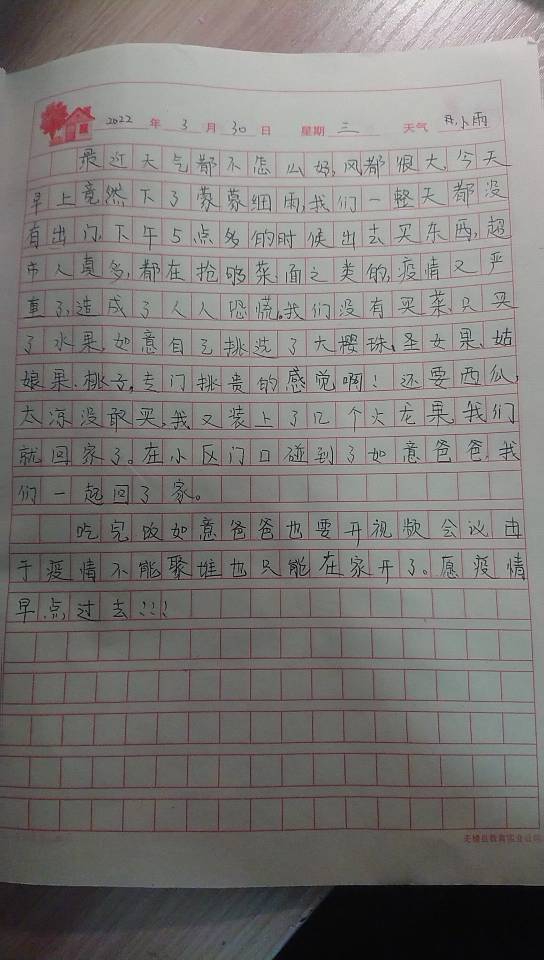 2022 年 3 月 30 日 星期 三 天气 小雨
最近天气都不怎么好,风都很大,今天
早上竟然下了蒙蒙细雨,我们一整天都没
有出门,下午5点多的时候出去买东西,超
市人真多,都在抢购菜.面之类的,疫情又严
重了,造成了人人恐慌。我们没有买菜,只买
了水果,如意自己挑选了大樱珠、圣女果、姑
娘果、桃子,专门挑贵的感觉啊!还要西瓜,
太凉没敢买,我又装上了几个火龙果,我们
就回家了。在小区门口碰到了如意爸爸,我
们一起回了家。
吃完饭如意爸爸也要开视频会议由
于疫情不能聚堆也只能在家开了。愿疫情
早点过去!!!